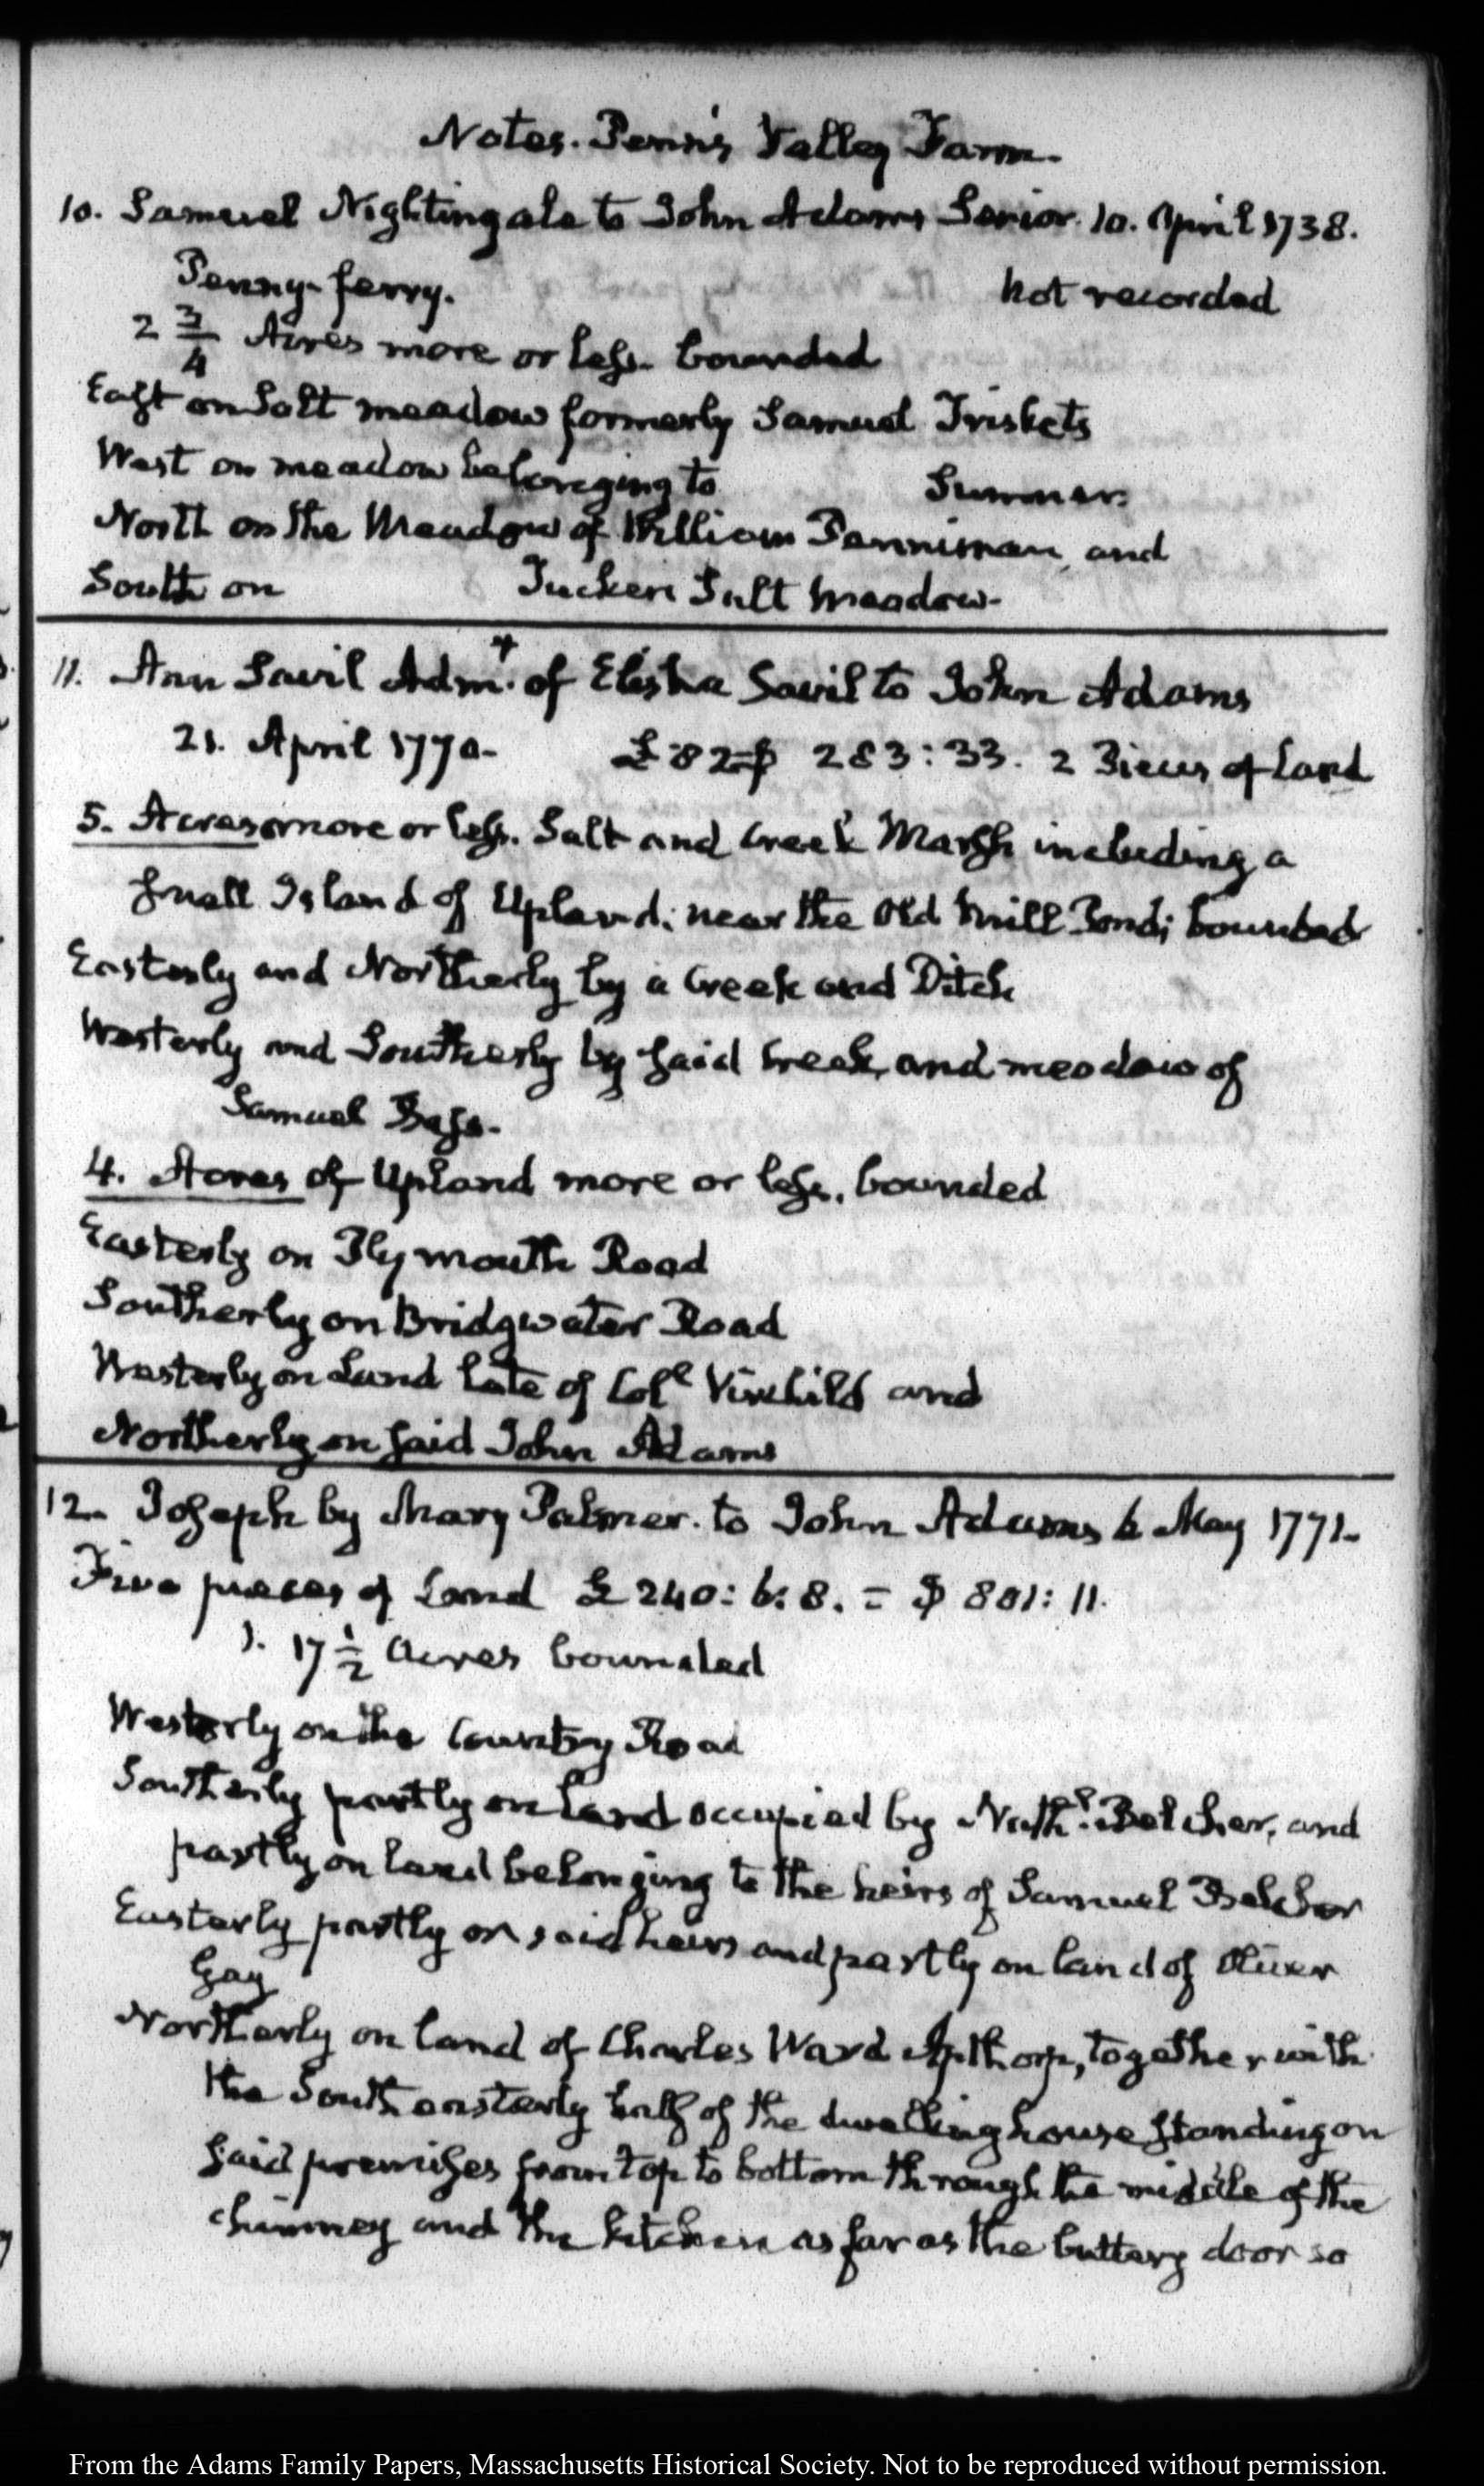 Notes. Penn's Valley Farm.
10. Samuel Nightingale to John Adams Senior. 10. April 1738.
Penny-ferry. not recorded
2 3/4 Acres more or less. bounded
East on Salt meadow formerly Samuel Triskets
West on meadow belonging to Sumner.
North on the Meadow of William Penniman, and
South on Tuckers Salt meadow.
11. Ann Savil Admx. of Elisha Savil to John Adams
21. April 1770. £82=$ 283:33. 2 Pieces of Land
5. Acres more or less. Salt and Creek Marsh including a
small Island of Upland; near the Old Mill Pond; bounded
Easterly and Northerly by a Creek and Ditch
Westerly and Southerly by said Creek, and meadow of
Samuel Bass.
4. Acres of Upland more or less, bounded
Easterly on Plymouth Road
Southerly on Bridgwater Road
Westerly on Land late of Coll Vinchild and
Northerly on said John Adams
12. Joseph by Mary Palmer. to John Adams 6 May 1771.
Five pieces of Land £ 240:6:8. = $ 801:11.
1. 17 1/2 Acres bounded
Westerly on the Country Road
Southerly partly on land occupied by Nathl. Belcher, and
partly on land belonging to the heirs of Samuel Belcher
Easterly partly on said heirs and partly on land of Oliver
Gay
Northerly on land of Charles Ward Apthorp, together with
the Southeasterly half of the dwelling house standing on
said premises from top to bottom through the middle of the
chimney and the kitchen as far as the buttery door so
From the Adams Family Papers, Massachusetts Historical Society. Not to be reproduced without permission.